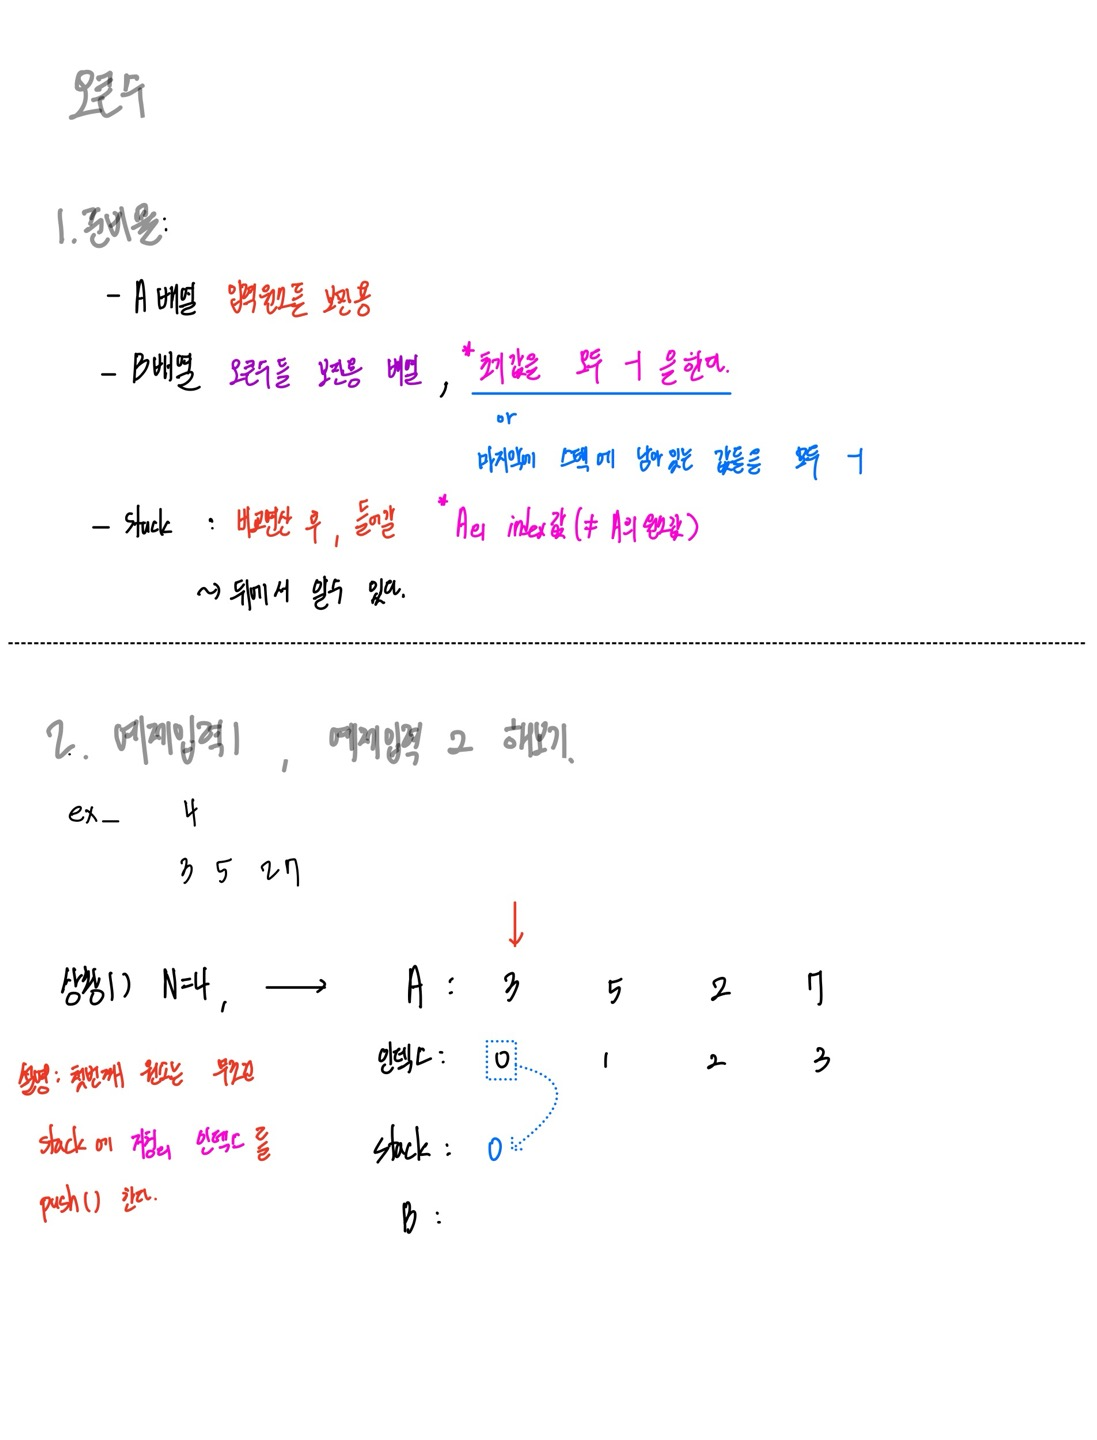 오큰수
1. 준비물:
- A 배열 입력 원소들 보관용
- B배열 오큰수들 보관용 배열, *초기값은 모두 -1 을 한다.
or
마지막에 스택에 남아 있는 값들은 모두 -1
- stack : 비교연산 후, 들어갈 *A의 index값 (≠ A의 원소값)
~> 뒤에서 알수 있다.
2. 예제입력1, 예제입력 2 해보기.
ex_ 4
3 5 2 7
↓
상황1) N=4, → A : 3 5 2 7
인덱스 : 0 1 2 3
설명 : 첫번째 원소는 무조건
stack에 자신의 인덱스를
push() 한다.
stack : 0
B :